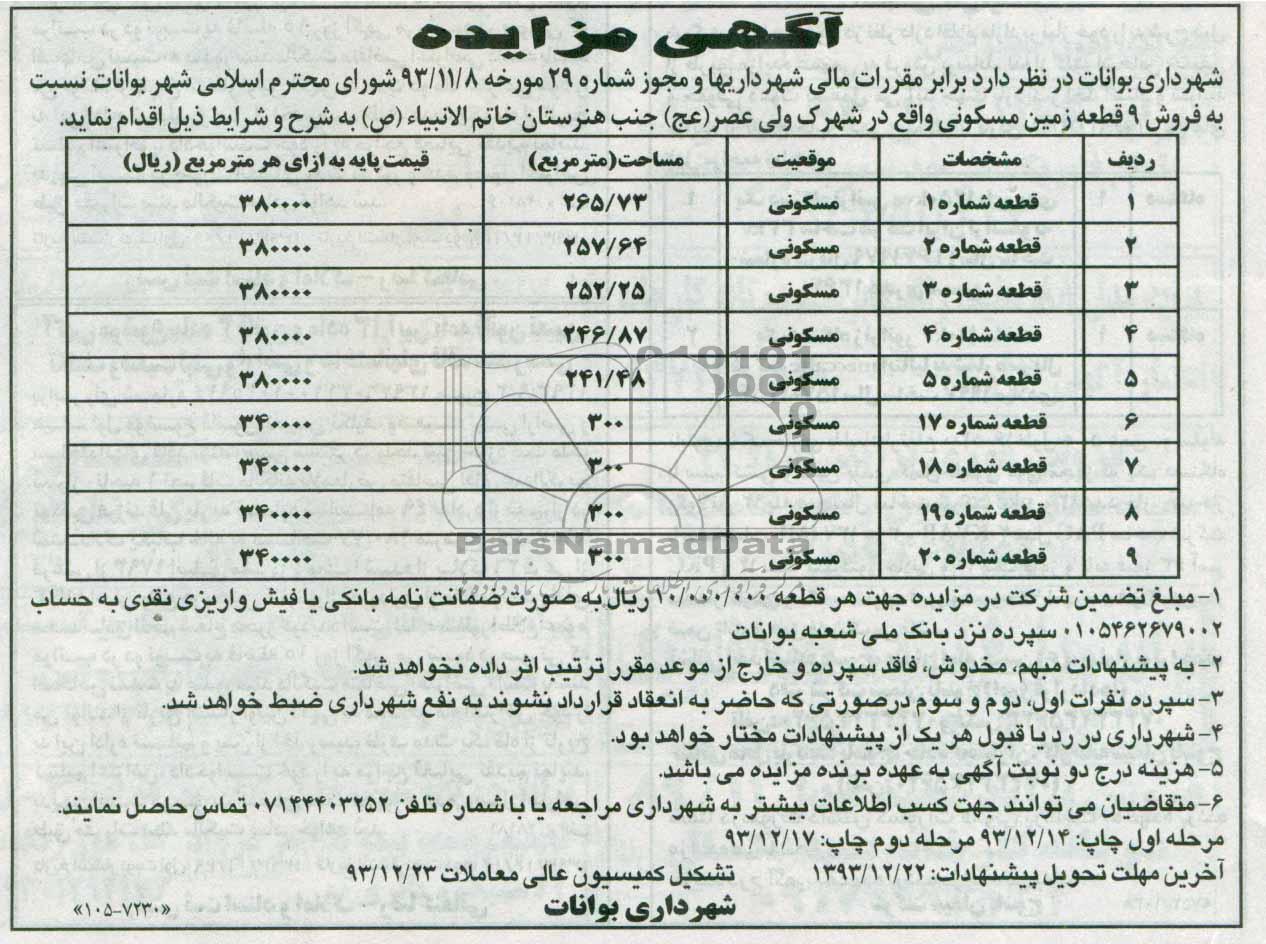 آگهی مزایده
شهرداری بوانات در نظر دارد برابر مقررات مالی شهرداریها و مجوز شماره ۲۹ مورخه ۹۳/۱۱/۸ شورای محترم اسلامی شهر بوانات نسبت
به فروش ۹ قطعه زمین مسکونی واقع در شهرک ولی عصر(عج) جنب هنرستان خاتم الانبیاء (ص) به شرح و شرایط ذیل اقدام نماید.
ردیف مشخصات موقعیت مساحت(مترمربع) قیمت پایه به ازای هر مترمربع (ریال)
۱ قطعه شماره ۱ مسکونی ۲۶۵/۷۳ ۳۸۰۰۰۰۰
۲ قطعه شماره ۲ مسکونی ۲۵۷/۶۴ ۳۸۰۰۰۰۰
۳ قطعه شماره ۳ مسکونی ۲۵۲/۲۵ ۳۸۰۰۰۰۰
۴ قطعه شماره ۴ مسکونی ۲۴۶/۸۷ ۳۸۰۰۰۰۰
۵ قطعه شماره ۵ مسکونی ۲۴۱/۴۸ ۳۸۰۰۰۰۰
۶ قطعه شماره ۱۷ مسکونی ۳۰۰ ۳۴۰۰۰۰۰
۷ قطعه شماره ۱۸ مسکونی ۳۰۰ ۳۴۰۰۰۰۰
۸ قطعه شماره ۱۹ مسکونی ۳۰۰ ۳۴۰۰۰۰۰
۹ قطعه شماره ۲۰ مسکونی ۳۰۰ ۳۴۰۰۰۰۰
ParsNamadData
۱- مبلغ تضمین شرکت در مزایده جهت هر قطعه ۱۰/۰۰۰/۰۰۰ ریال به صورت ضمانت نامه بانکی یا فیش واریزی نقدی به حساب
۰۱۰۵۴۶۲۶۷۹۰۰۲ سپرده نزد بانک ملی شعبه بوانات
۲- به پیشنهادات مبهم، مخدوش، فاقد سپرده و خارج از موعد مقرر ترتیب اثر داده نخواهد شد.
۳- سپرده نفرات اول، دوم و سوم درصورتی که حاضر به انعقاد قرارداد نشوند به نفع شهرداری ضبط خواهد شد.
۴- شهرداری در رد یا قبول هر یک از پیشنهادات مختار خواهد بود.
۵- هزینه درج دو نوبت آگهی به عهده برنده مزایده می باشد.
۶- متقاضیان می توانند جهت کسب اطلاعات بیشتر به شهرداری مراجعه یا با شماره تلفن ۰۷۱۴۴۴۰۳۲۵۲ تماس حاصل نمایند.
مرحله اول چاپ: ۹۳/۱۲/۱۴ مرحله دوم چاپ: ۹۳/۱۲/۱۷
آخرین مهلت تحویل پیشنهادات: ۱۳۹۳/۱۲/۲۲ تشکیل کمیسیون عالی معاملات ۹۳/۱۲/۲۳
شهرداری بوانات
«۱۰۵-۷۲۳۰»